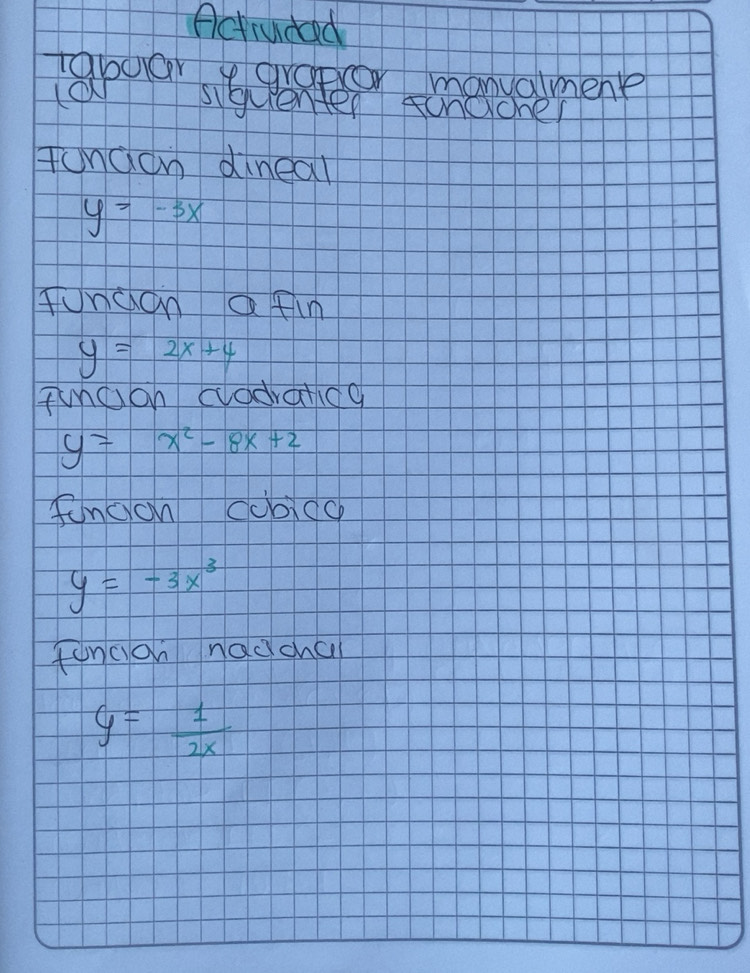 Actividad
Tabular y graficar manualmente
la siguientes funciones
Funcion lineal
y = -3x
funcion a fin
y = 2x+4
funcion cuadratica
y = x² - 8x + 2
funcion cubica
y = -3x³
funcion nacional
y = 1
2x